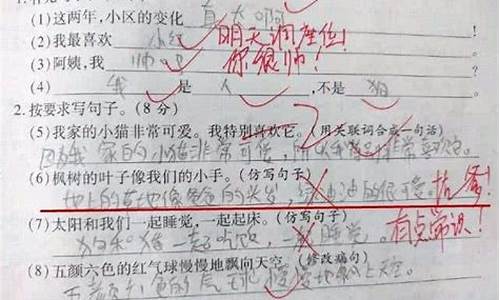 (1)这两年,小区的变化真大啊
(2)我最喜欢 小红 明天调座位!
(3)阿姨,我 帅吗 你很帅!
(4) 我 是 人 ,不是 狗
2.按要求写句子。(8分)
(5)我家的小猫非常可爱。我特别喜欢它。(用关联词合成一句话)
因为我家的小猫非常可爱,所以我特别非常喜欢它。
(6)枫树的叶子像我们的小手。(仿写句子)
地上的草地像爸爸的头发,绿油油的很可爱。 找爹!
(7)太阳和我们一起睡觉,一起起床。(仿写句子)
狗和猪一起吃饭,一起睡觉。 有点常识!
(8)五颜六色的红气球慢慢地飘向天空。(修改病句)
五颜六色的气球慢慢地飘上天空。